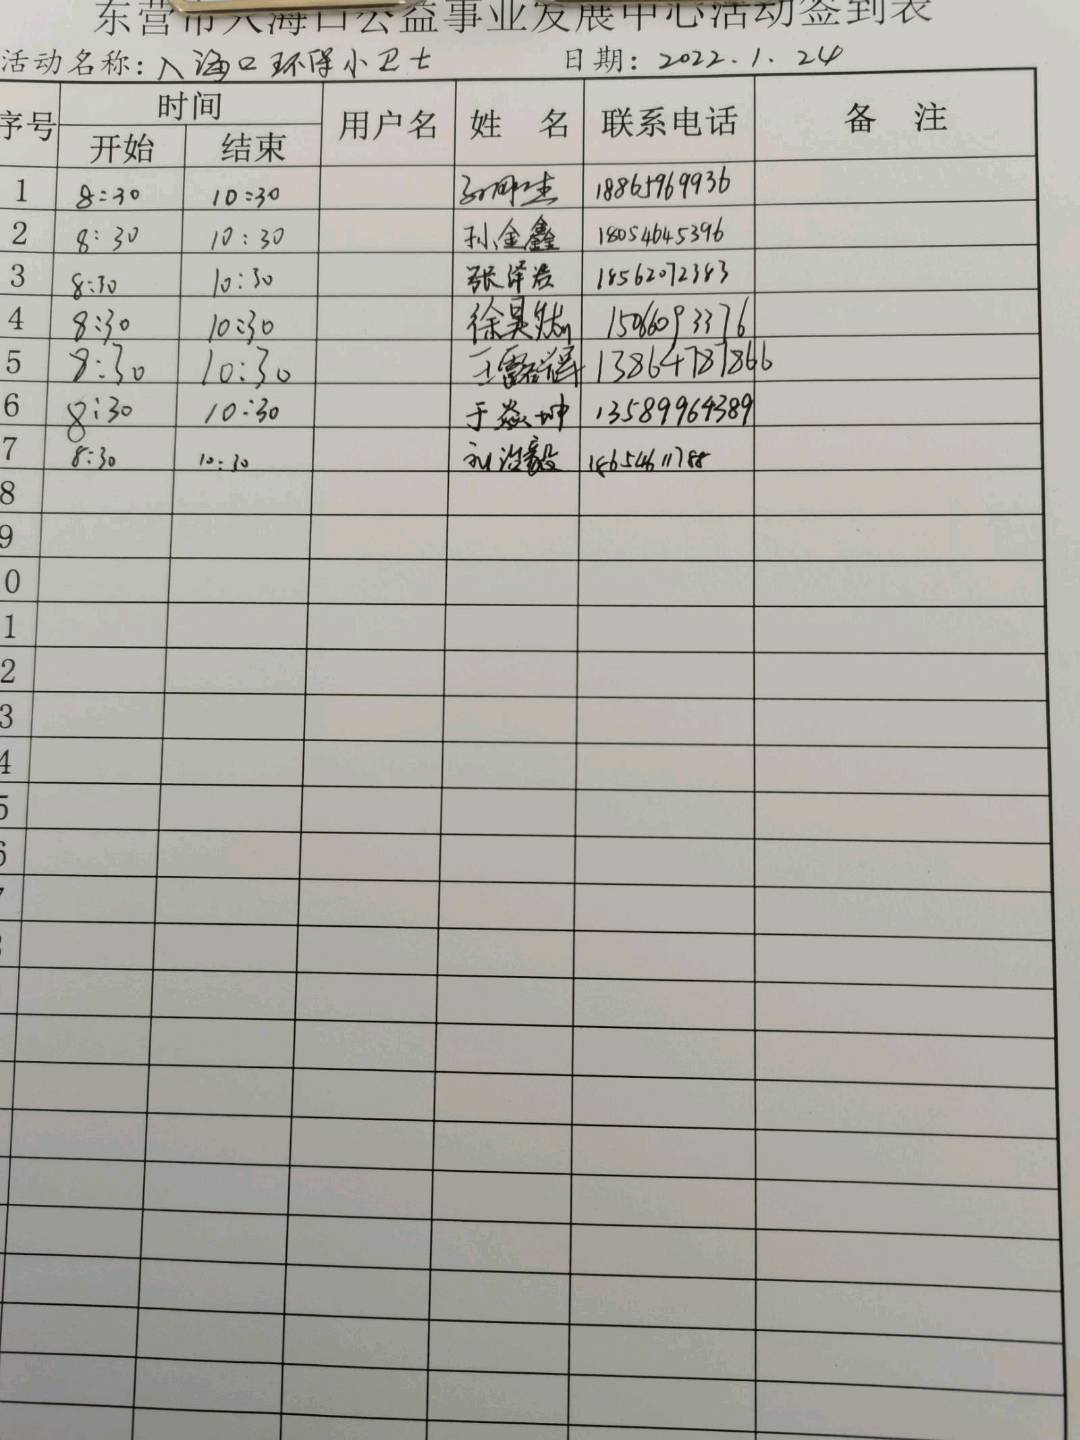 东营市入海口公益事业发展中心活动签到表
活动名称：入海口环保小卫士 日期：2022.1.24
序号 时间 用户名 姓 名 联系电话 备 注
开始 结束
1 8:30 10:30 18865969936
2 8:30 10:30 孙金鑫 18054645396
3 8:30 10:30 张泽浩 18562072383
4 8:30 10:30 徐昊然 15066093376
5 8:30 10:30 13864787866
6 8:30 10:30 于焱坤 13589964389
7 8:30 10:30 刘浩毅 18654611788
8
9
0
1
2
3
4
5
6